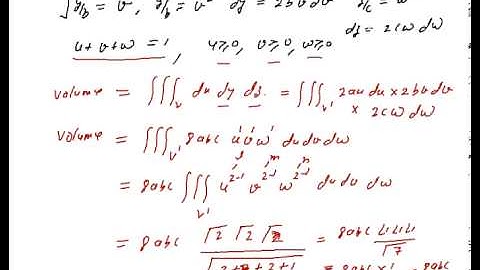 √y/b = v, y/b = v² dy = 2bv dv z/c = w²
dz = 2cw dw
u+v+w = 1, u≥0, v≥0, w≥0
volume = ∭_V du dy dz = ∭_V' 2au du × 2bv dv × 2cw dw
volume = ∭_V' 8abc u¹ v¹ w¹ du dv dw
= 8abc ∭_V' u^{2-1} v^{2-1} w^{2-1} du dv dw
= 8abc √2 √2 √2 = 8abc
√2+2+2+1 √7